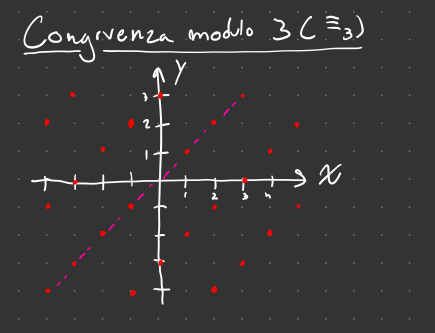 Congruenza modulo 3 (≡₃)
y
3
2
1
x
1 2 3 4